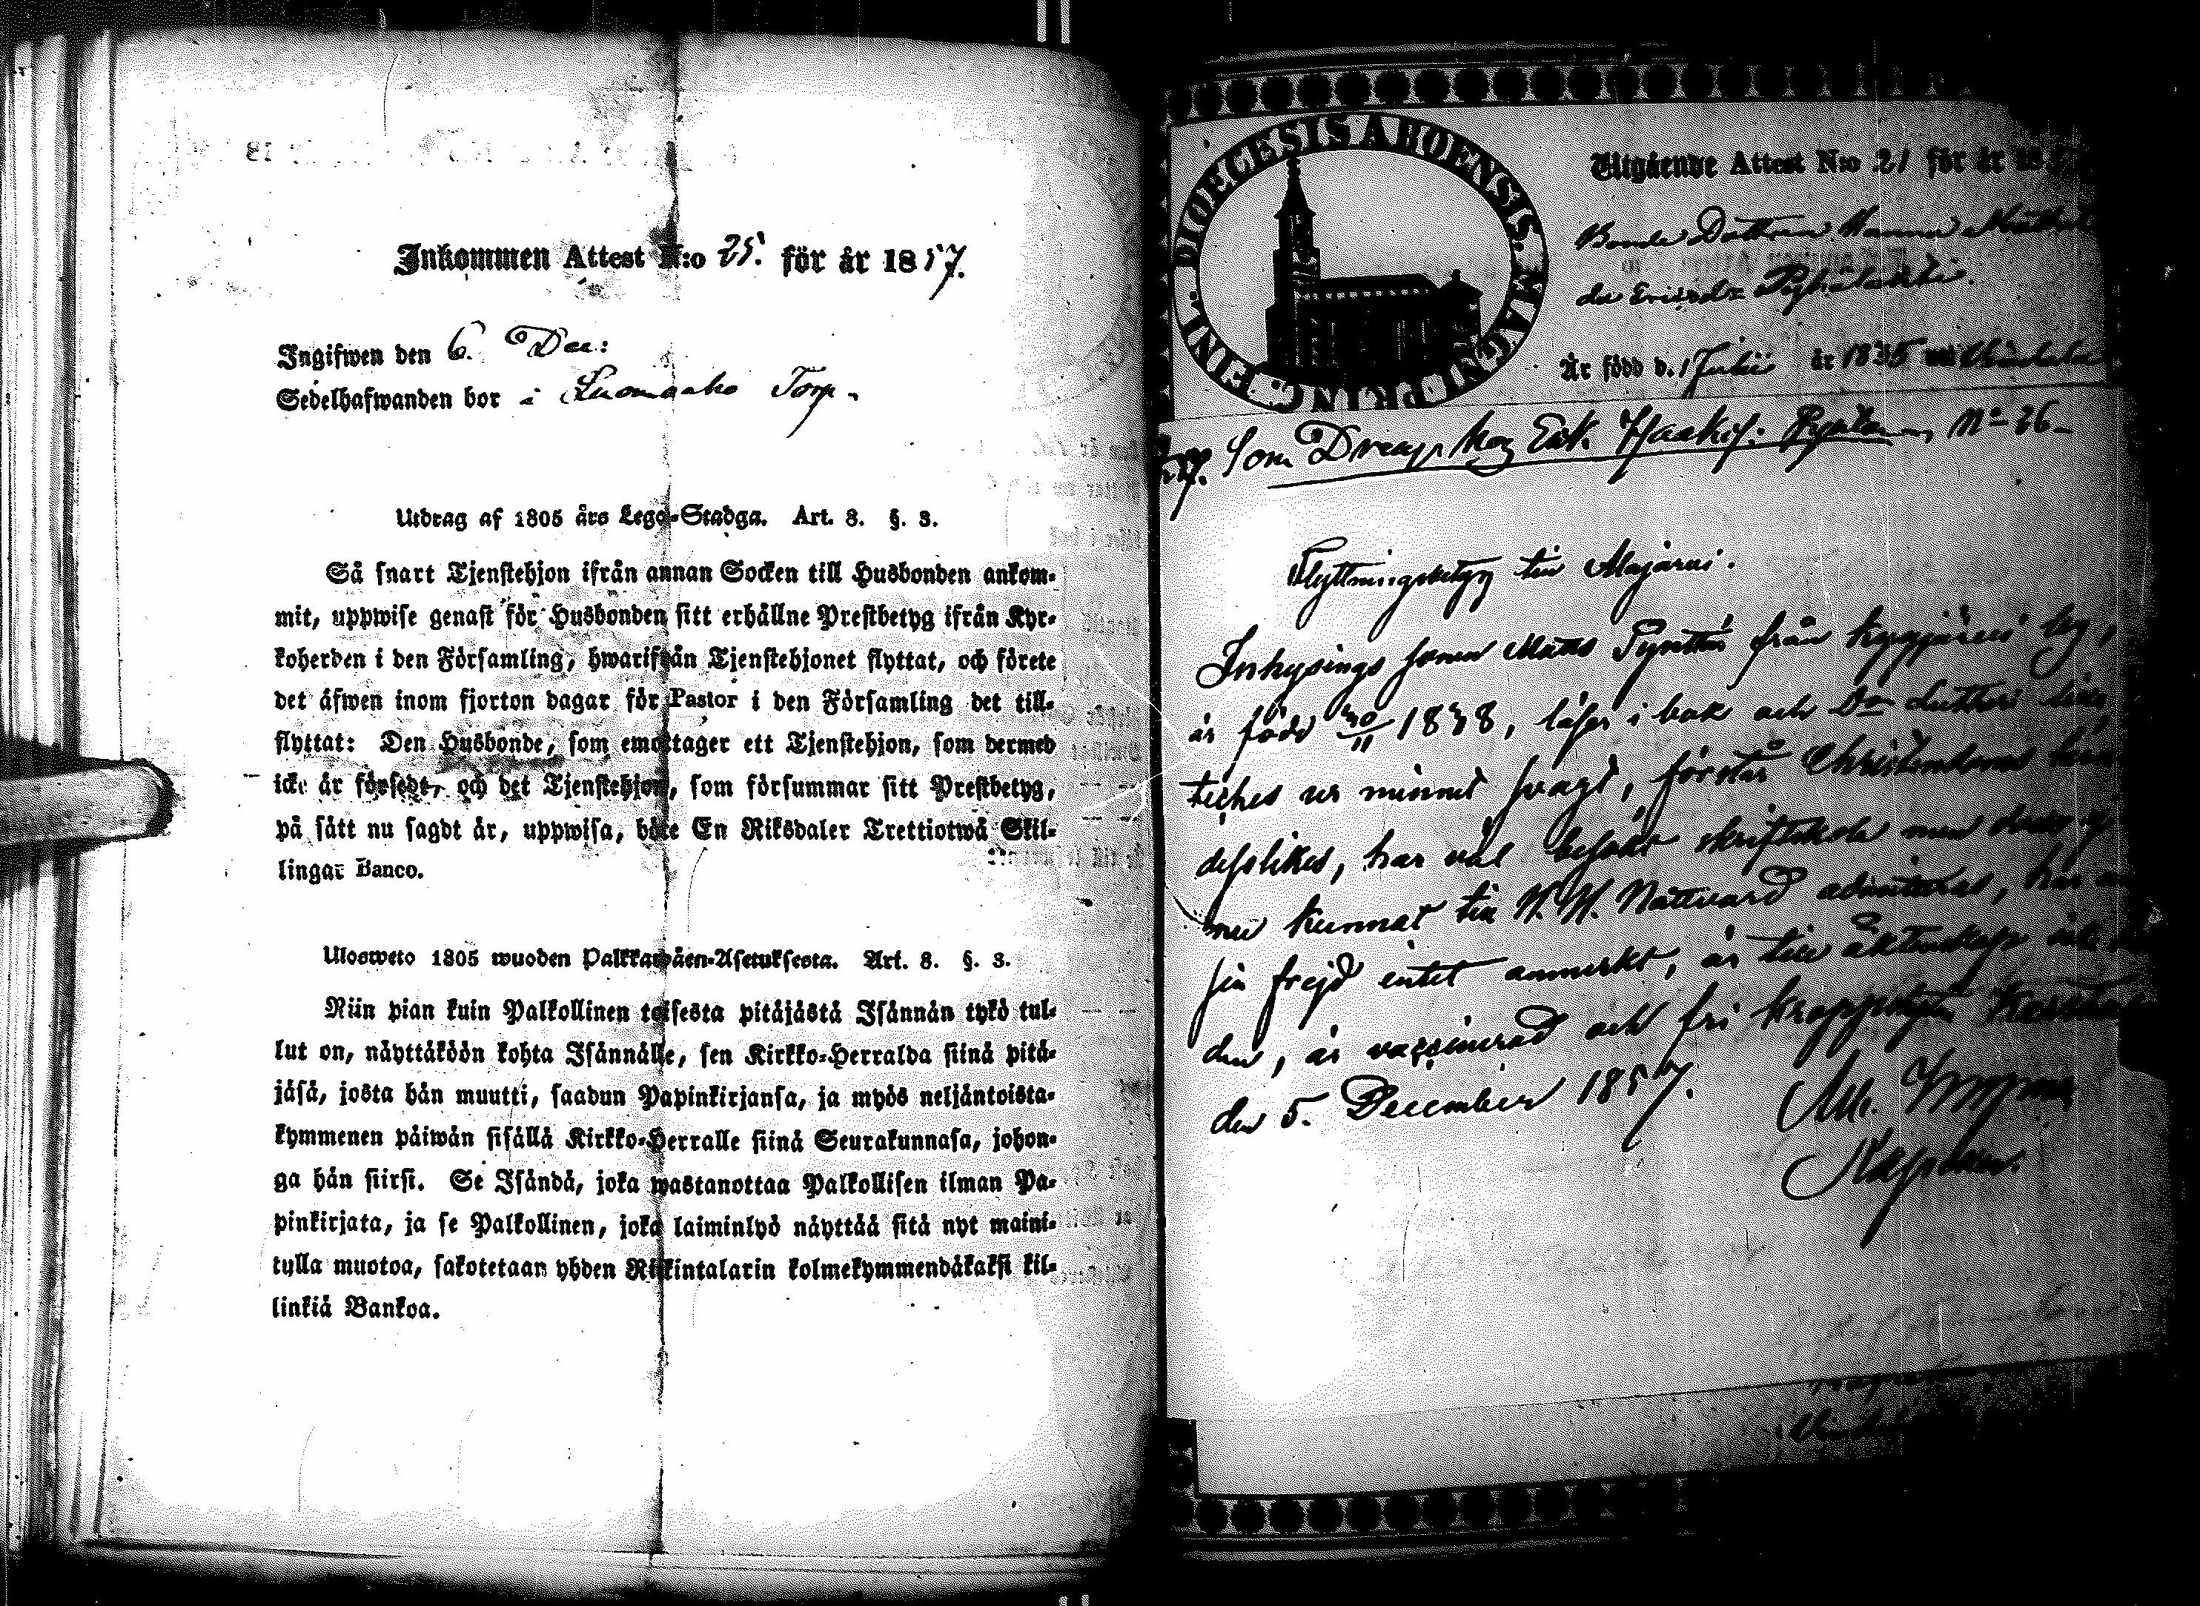 Inkommen Attest N:o 25. för år 1857.
Ingifwen den 6. Dec:
Sedelhafwanden bor i Luomaaho Torp.
Utdrag af 1805 års Lego-Stadga. Art. 8. §. 3.
Så snart Tjenstehjon ifrån annan Socken till Husbonden ankom-
mit, uppwise genast för Husbonden sitt erhållne Prestbetyg ifrån Kyr-
koherden i den Församling, hwarifrån Tjenstehjonet flyttat, och förete
det äfwen inom fjorton dagar för Pastor i den Församling det till-
flyttat: Den Husbonde, som emottager ett Tjenstehjon, som dermed
icke är försedt, och det Tjenstehjon, som försummar sitt Prestbetyg,
på sätt nu sagdt är, uppwisa, böte En Riksdaler Trettiotwå Skil-
lingar Banco.
Ulosweto 1805 wuoden Palkkawäen-Asetuksesta. Art. 8. §. 3.
Niin pian kuin Palkollinen toisesta pitäjästä Isännän tykö tul-
lut on, näyttäköön kohta Isännälle, sen Kirkko-Herralda siinä pitä-
jäsä, josta hän muutti, saadun Papinkirjansa, ja myös neljäntoista-
kymmenen päiwän sisällä Kirkko-Herralle siinä Seurakunnasa, johon-
ga hän siirsi. Se Isändä, joka wastanottaa Palkollisen ilman Pa-
pinkirjata, ja se Palkollinen, joka laiminlyö näyttää sitä nyt maini-
tulla muotoa, sakotetaan yhden Riikintalarin kolmekymmendäkaksi kil-
linkiä Bankoa.
DIOECESIS ABOENSIS. MAGNI PRINC. FINL.
Utgående Attest N:o 21 för år 18
Bonde Dottren Hanna
Är född d. 1 Julii år 1835
Som Dreng hos Erik N:o 26
Flyttningsbetyg till
Inhysings sonen Matts från Kyrgjärvi by,
är född 30/11 1838, läser i bok och D:n Lutheri
teches ur minnet svagt, förstår Christendomens
desslikes, har väl besökt skriftskola men
nu kunnat till H. H. Nattvard admitteras, har
sin frejd intet anmärkt, är till äktenskap
den, är vaccinerad och fri
den 5. December 1857.